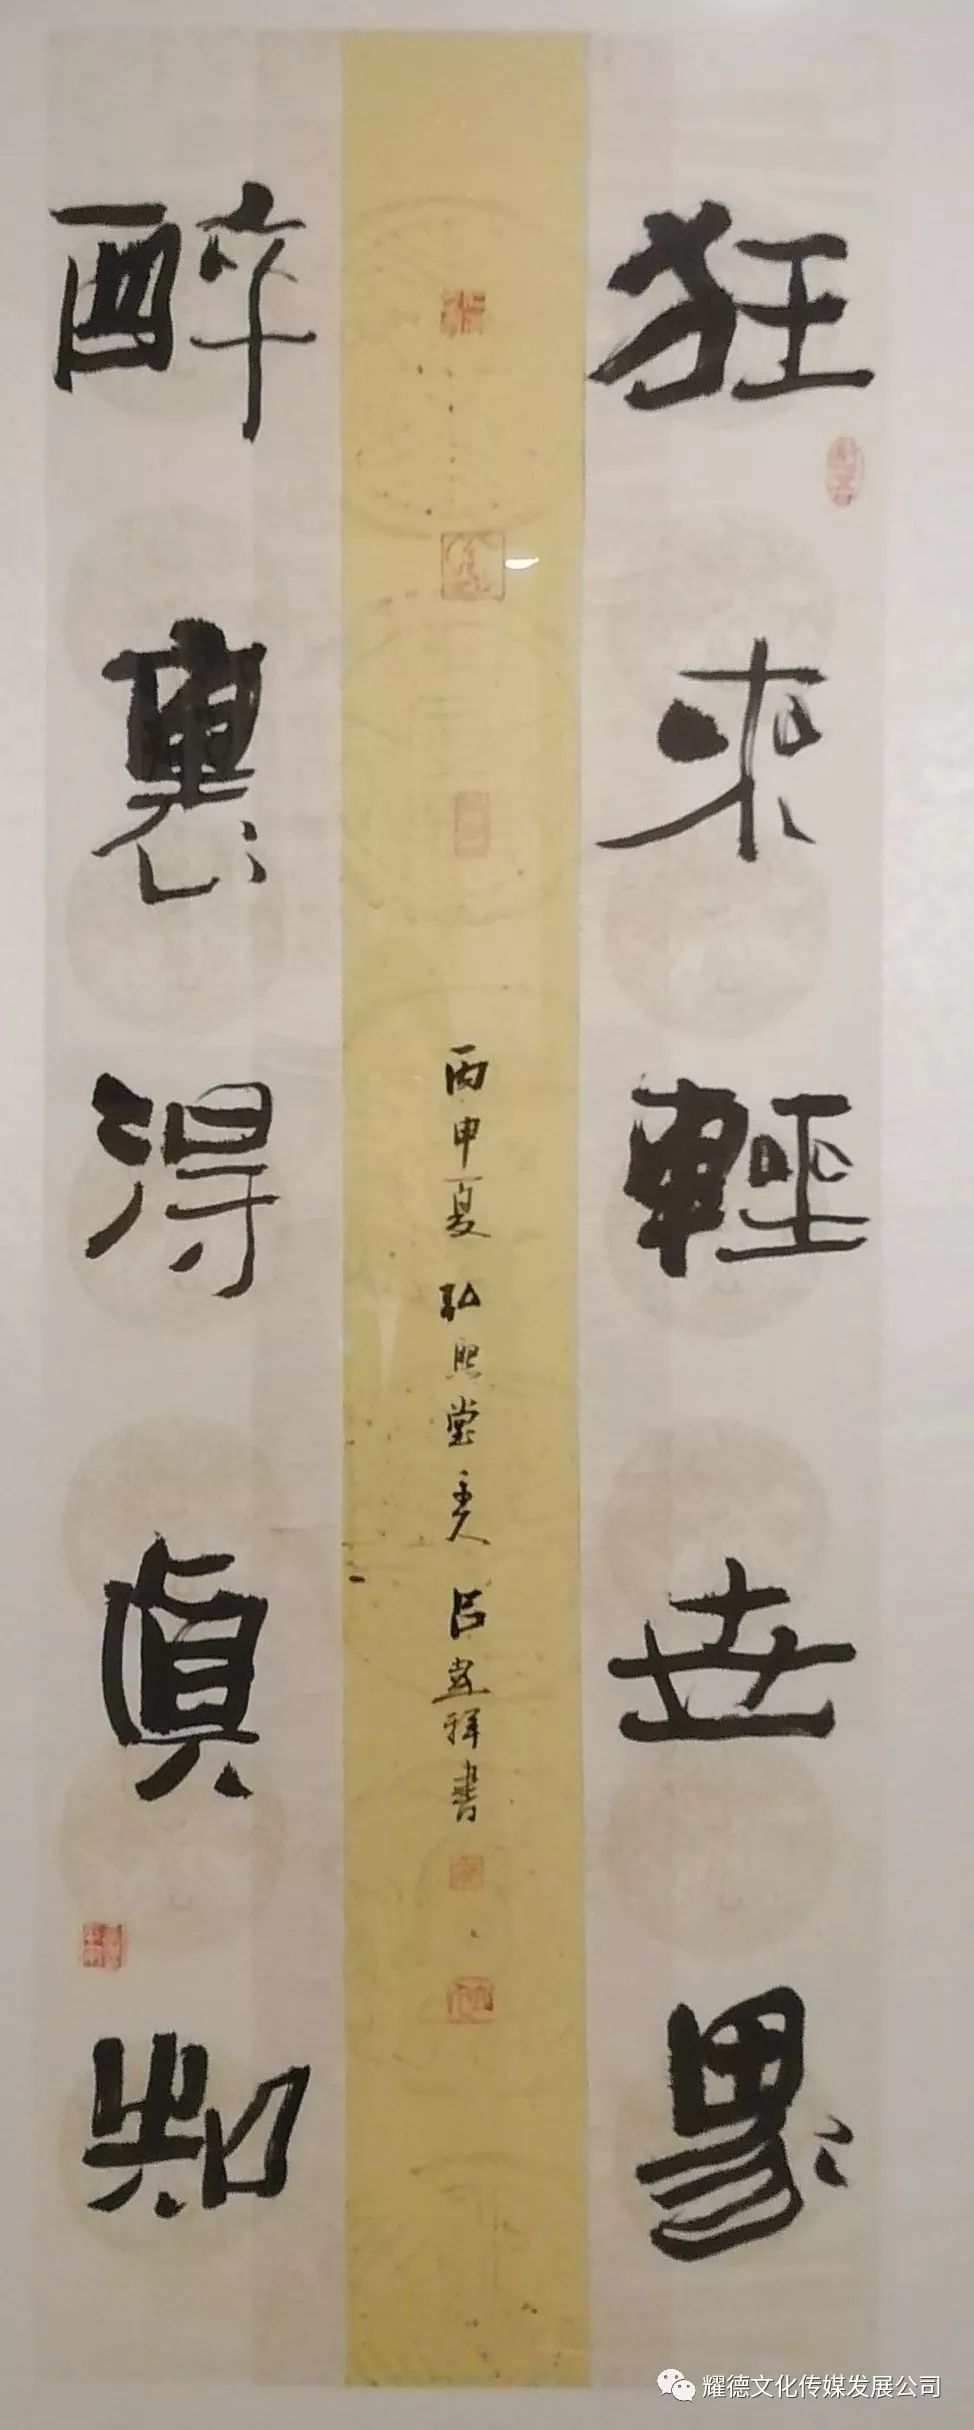 狂來輕世界
醉裏得真知
丙申夏 弘熙堂主人 呂建祥書
耀德文化传媒发展公司